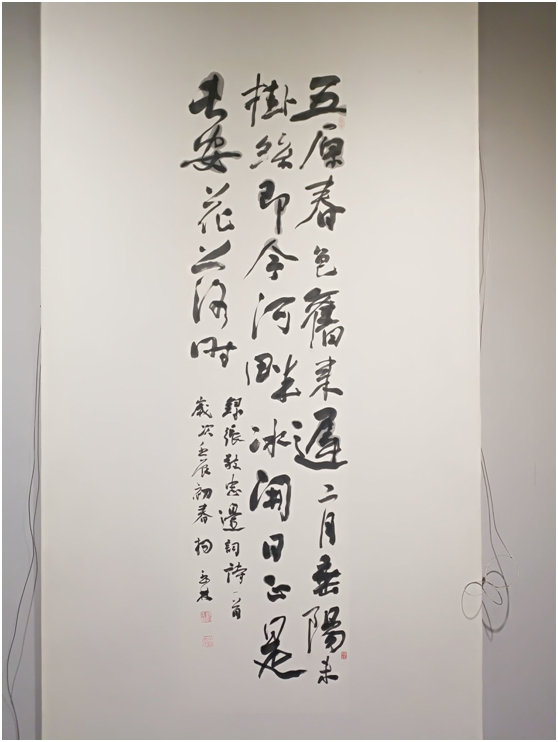 五原春色舊來遲二月垂陽未
掛絲即今河畔冰開日正是
長安花落時
錄張敬忠邊詞詩一首
歲次壬辰初春楊